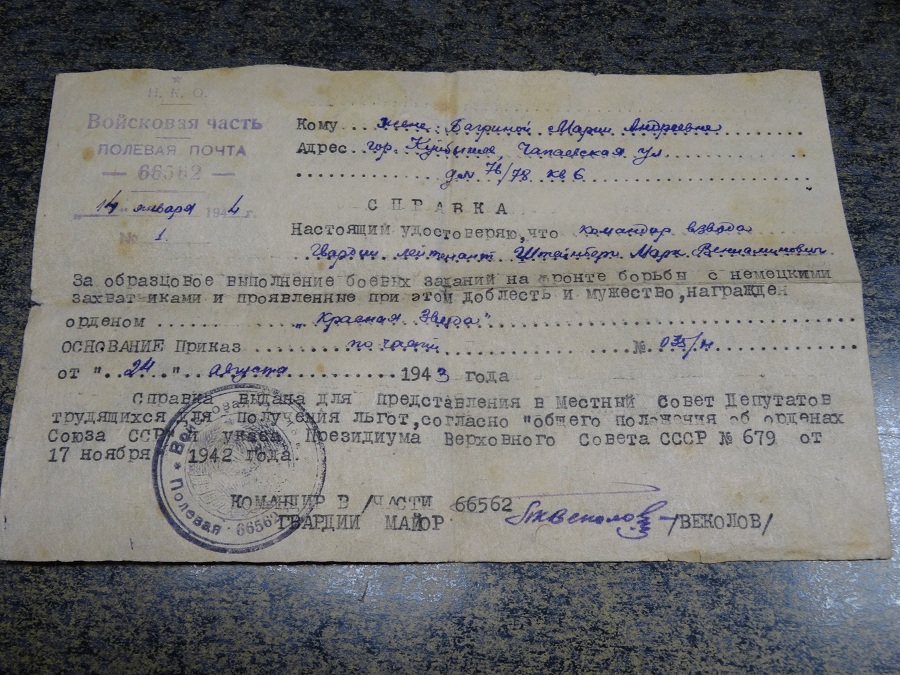 Н. К. О.
Войсковая часть
ПОЛЕВАЯ ПОЧТА
— 66562 —
"14" января 1944 г.
№ 1
Кому... жене Багриной Марии Андреевне
Адрес.. гор. Куйбышев, Чапаевская ул
дом 76/78 кв 6
СПРАВКА
Настоящий удостоверяю, что командир взвода
Гвардии лейтенант Штейнберг Марк Вениаминович
За образцовое выполнение боевых заданий на фронте борьбы с немецкими
захватчиками и проявленные при этом доблесть и мужество, награжден
орденом "Красная Звезда"
ОСНОВАНИЕ Приказ по части № 035/н
от "24" августа 1943 года
Справка выдана для представления в Местный Совет Депутатов
трудящихся для получения льгот, согласно "общего положения об орденах
Союза ССР" и указа Президиума Верховного Совета СССР № 679 от
17 ноября 1942 года.
Войсковая часть
Полевая 66562
КОМАНДИР В/ЧАСТИ 66562
ГВАРДИИ МАЙОР /ВЕКОЛОВ/